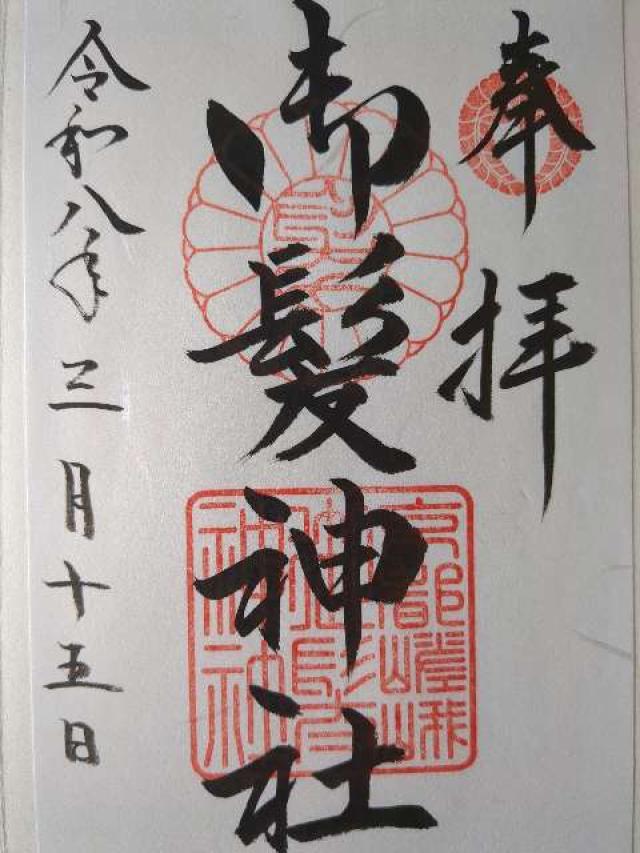 奉拝
御髪神社
令和八年三月十五日
京都嵯峨